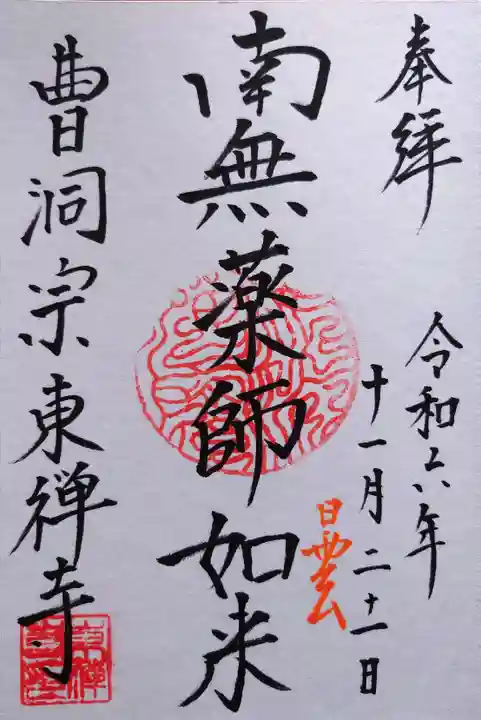 奉拝
令和六年
十一月二十一日
曇
南無薬師如来
曹洞宗東禅寺